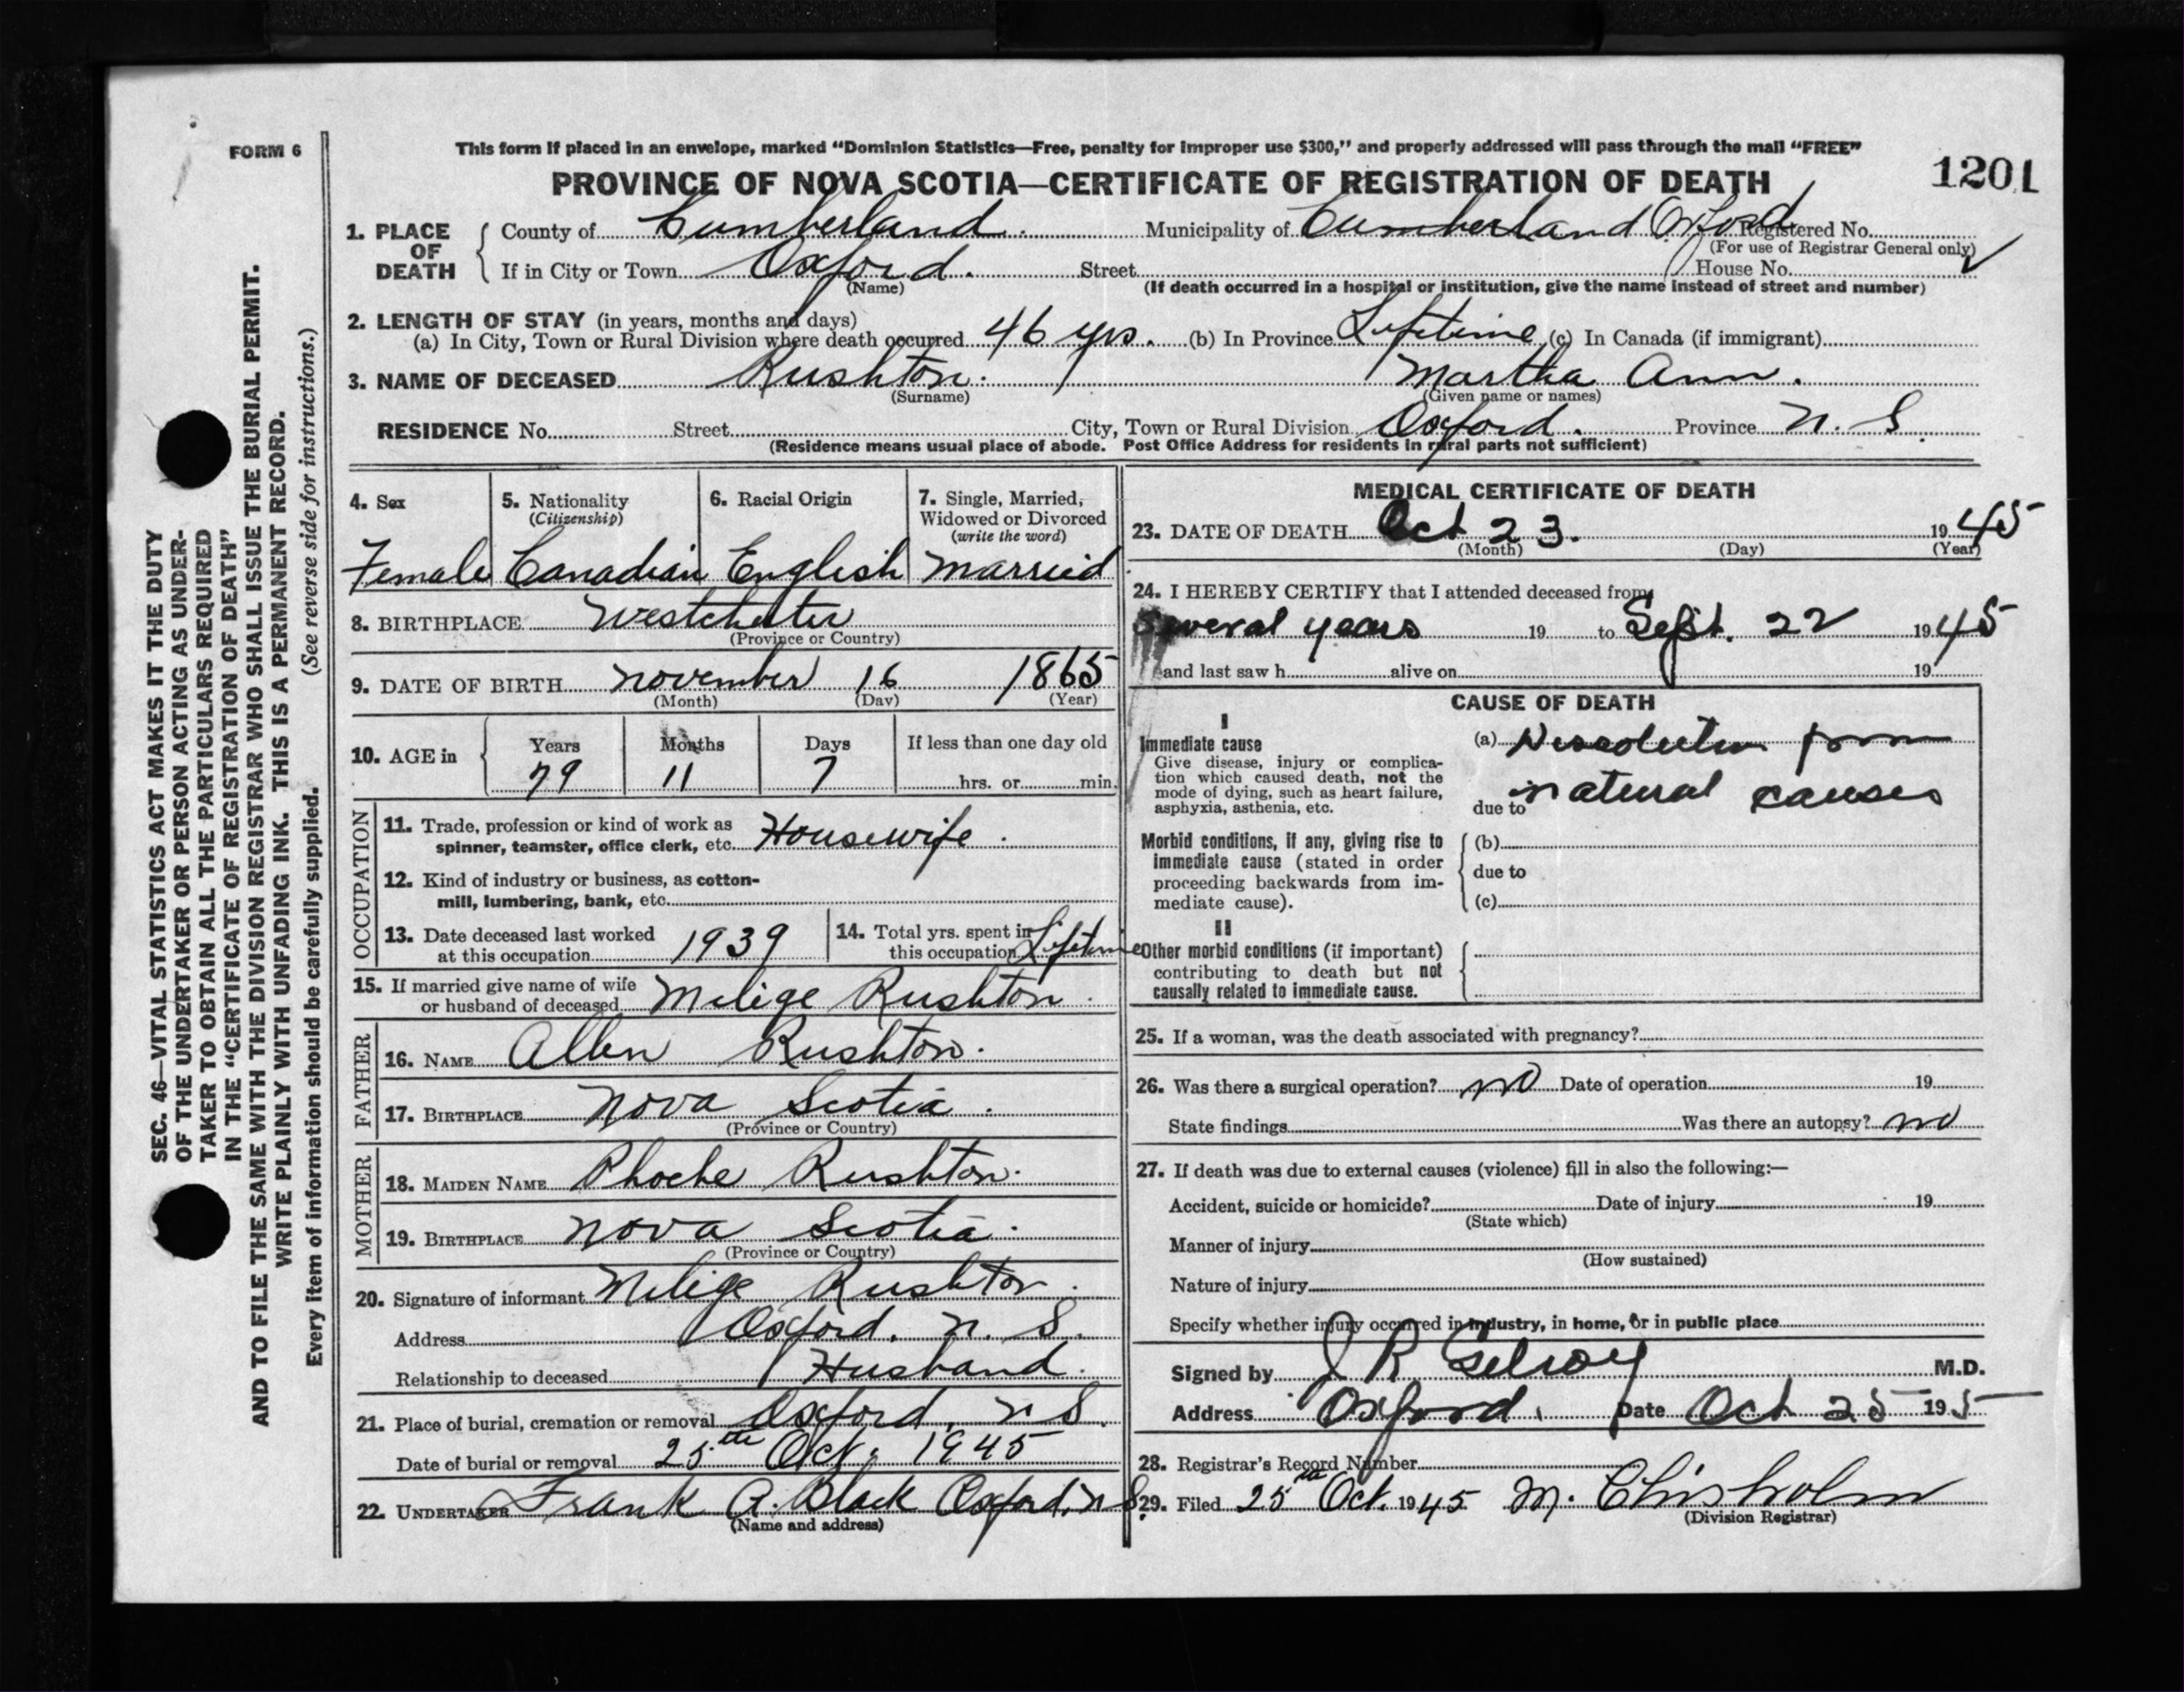 FORM 6
This form if placed in an envelope, marked "Dominion Statistics—Free, penalty for improper use $300," and properly addressed will pass through the mail "FREE"
PROVINCE OF NOVA SCOTIA—CERTIFICATE OF REGISTRATION OF DEATH
1201
1. PLACE OF DEATH
County of Cumberland. Municipality of Cumberland Oxford Registered No.
(For use of Registrar General only)
If in City or Town Oxford. Street House No.
(Name) (If death occurred in a hospital or institution, give the name instead of street and number)
2. LENGTH OF STAY (in years, months and days)
(a) In City, Town or Rural Division where death occurred 46 yrs. (b) In Province Lifetime (c) In Canada (if immigrant)
3. NAME OF DECEASED Rushton. Martha Ann.
(Surname) (Given name or names)
RESIDENCE No. Street City, Town or Rural Division Oxford. Province N. S.
(Residence means usual place of abode. Post Office Address for residents in rural parts not sufficient)
4. Sex
Female
5. Nationality
(Citizenship)
Canadian
6. Racial Origin
English
7. Single, Married,
Widowed or Divorced
(write the word)
Married
8. BIRTHPLACE Westchester
(Province or Country)
9. DATE OF BIRTH November 16 1865
(Month) (Day) (Year)
10. AGE in
Years Months Days If less than one day old
79 11 7 hrs. or min.
OCCUPATION
11. Trade, profession or kind of work as
spinner, teamster, office clerk, etc. Housewife.
12. Kind of industry or business, as cotton-
mill, lumbering, bank, etc.
13. Date deceased last worked
at this occupation 1939
14. Total yrs. spent in
this occupation Lifetime
15. If married give name of wife
or husband of deceased Melige Rushton.
FATHER
16. NAME Allen Rushton.
17. BIRTHPLACE Nova Scotia.
(Province or Country)
MOTHER
18. MAIDEN NAME Phoebe Rushton.
19. BIRTHPLACE Nova Scotia.
(Province or Country)
20. Signature of informant Melige Rushton.
Address Oxford, N. S.
Relationship to deceased Husband.
21. Place of burial, cremation or removal Oxford, N S.
Date of burial or removal 25th Oct. 1945
22. UNDERTAKER Frank A. Black Oxford, N S.
(Name and address)
MEDICAL CERTIFICATE OF DEATH
23. DATE OF DEATH Oct 23. 1945
(Month) (Day) (Year)
24. I HEREBY CERTIFY that I attended deceased from
Several years 19 to Sept. 22 1945
and last saw h alive on 19
CAUSE OF DEATH
I
Immediate cause
Give disease, injury or complica-
tion which caused death, not the
mode of dying, such as heart failure,
asphyxia, asthenia, etc.
(a) Dissolution from
due to natural causes
Morbid conditions, if any, giving rise to
immediate cause (stated in order
proceeding backwards from im-
mediate cause).
(b)
due to
(c)
II
Other morbid conditions (if important)
contributing to death but not
causally related to immediate cause.
25. If a woman, was the death associated with pregnancy?
26. Was there a surgical operation? no Date of operation 19
State findings Was there an autopsy? no
27. If death was due to external causes (violence) fill in also the following:—
Accident, suicide or homicide? Date of injury 19
(State which)
Manner of injury
(How sustained)
Nature of injury
Specify whether injury occurred in industry, in home, or in public place
Signed by J R Gilroy M.D.
Address Oxford. Date Oct 25 195
28. Registrar's Record Number
29. Filed 25th Oct. 1945 M. Chisholm
(Division Registrar)
SEC. 46—VITAL STATISTICS ACT MAKES IT THE DUTY
OF THE UNDERTAKER OR PERSON ACTING AS UNDER-
TAKER TO OBTAIN ALL THE PARTICULARS REQUIRED
IN THE "CERTIFICATE OF REGISTRATION OF DEATH"
AND TO FILE THE SAME WITH THE DIVISION REGISTRAR WHO SHALL ISSUE THE BURIAL PERMIT.
WRITE PLAINLY WITH UNFADING INK. THIS IS A PERMANENT RECORD.
Every item of information should be carefully supplied. (See reverse side for instructions.)